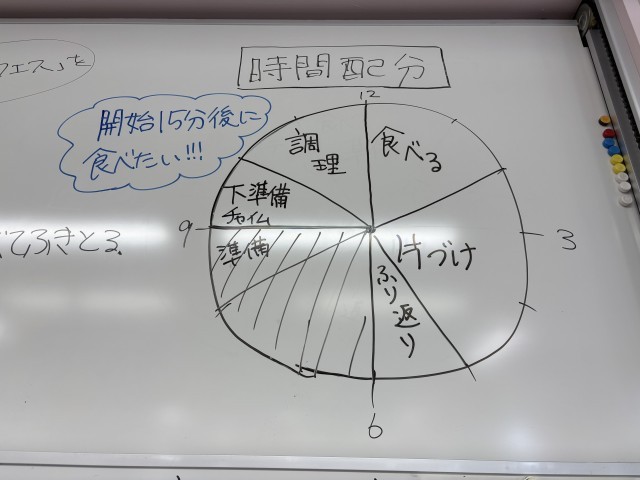 フェス」を
時間配分
開始15分後に
食べたい!!!
12
調
理
食べる
下準備
チャイム
9
準備
3
片づけ
ふり返り
てふきとる
6